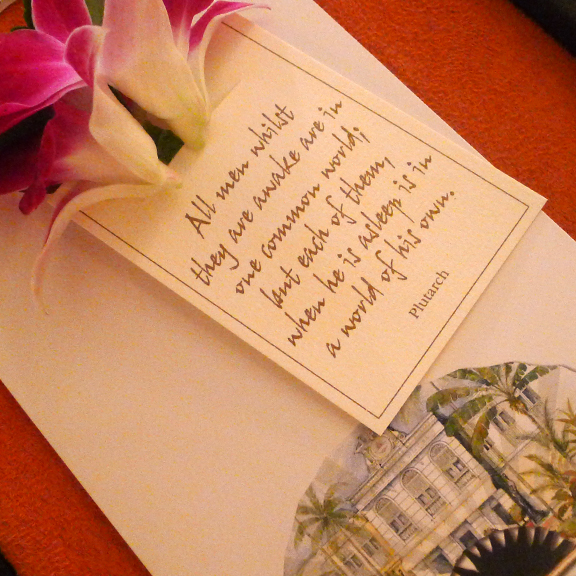 All men whilst
they are awake are in
one common world;
but each of them,
when he is asleep is in
a world of his own.
Plutarch